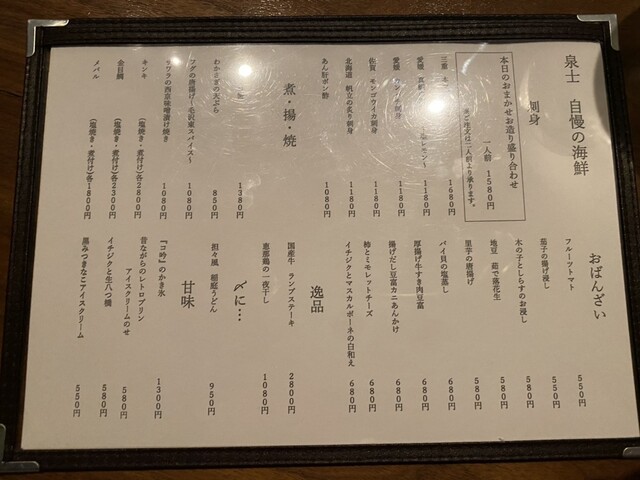 泉士 自慢の海鮮
刺身
本日のおまかせお造り盛り合わせ
一人前 1580円
※ご注文は二人前より承ります。
三重 1680円
愛媛 レモン〜 1180円
愛媛 刺身 1180円
佐賀 モンゴウイカ刺身 1180円
北海道 帆立の炙り刺身 1180円
あん肝ポン酢 1080円
煮・揚・焼
1380円
わかさぎの天ぷら 850円
フグの唐揚げ〜毛沢東スパイス〜 1080円
サワラの西京味噌漬け焼き 1080円
キンキ (塩焼き・煮付け)各2800円
金目鯛 (塩焼き・煮付け)各2300円
メバル (塩焼き・煮付け)各1800円
おばんざい
フルーツトマト 550円
茄子の揚げ浸し 580円
木の子としらすのお浸し 580円
地豆 茹で落花生 580円
里芋の唐揚げ 580円
バイ貝の塩蒸し 680円
厚揚げ牛すき肉豆富 680円
揚げだし豆富カニあんかけ 680円
柿とミモレットチーズ 680円
イチジクとマスカルポーネの白和え 680円
逸品
国産牛 ランプステーキ 2800円
恵那鶏の一夜干し 1080円
〆に…
担々風 稲庭うどん 950円
甘味
『コ吟』のかき氷 1300円
昔ながらのレトロプリン
アイスクリームのせ 580円
イチジクと生八つ橋 580円
黒みつきなこアイスクリーム 550円